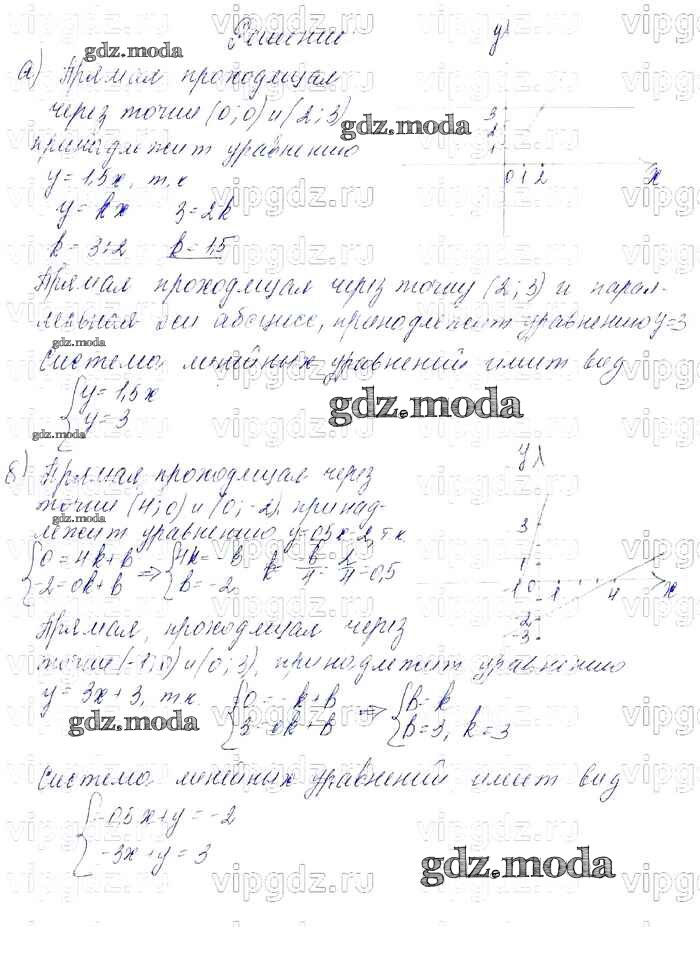 Решение
а) Прямая проходящая
через точки (0; 0) и (2; 3)
принадлежит уравнению
y = 1,5x, т.к
y = kx 3 = 2k
k = 3÷2 k = 1,5
y
3
2
1
0 1 2 x
Прямая проходящая через точку (2; 3) и парал-
лельная оси абсцисс, принадлежит уравнению y=3
Система линейных уравнений имеет вид
{y = 1,5x
{y = 3
б) Прямая, проходящая через
точки (4; 0) и (0; -2), принад-
лежит уравнению y=0,5x-2, т.к
{0 = 4k + b => {4k = -b k = b/4 = 2/4 = 0,5
{-2 = 0k + b {b = -2
y
3
1
-1 0 1 4 x
-2
-3
Прямая, проходящая через
точки (-1; 0) и (0; 3), принадлежит уравнению
y = 3x + 3, т.к. {0 = -k + b => {b = k
{3 = 0k + b {b = 3, k = 3
Система линейных уравнений имеет вид
{-0,5x + y = -2
{-3x + y = 3
gdz.moda
gdz.moda
gdz.moda
gdz.moda
gdz.moda
gdz.moda
gdz.moda
gdz.moda
vipgdz.ru